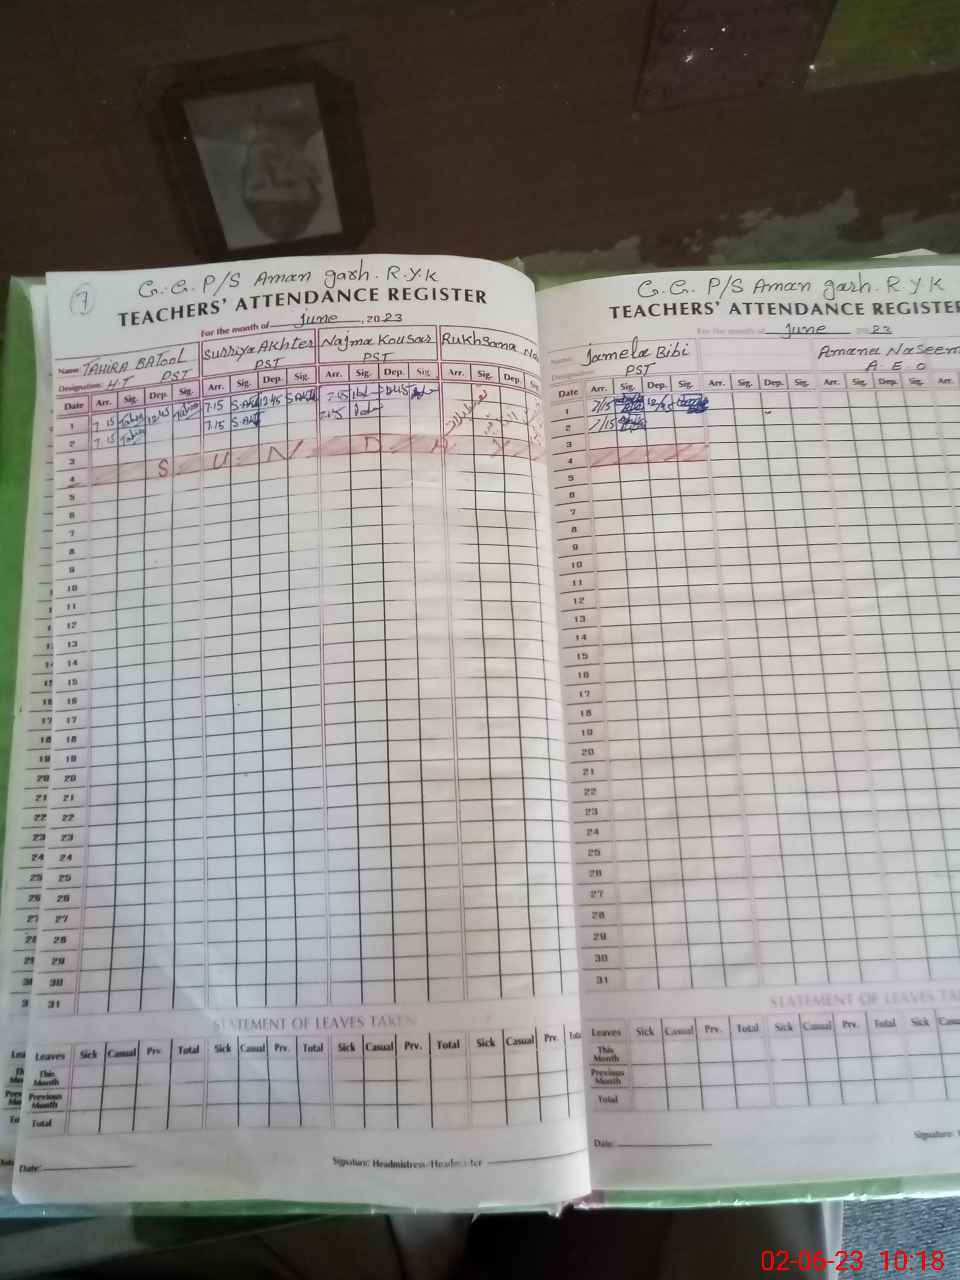 7
G.G. P/S Aman garh. R.Y.K
TEACHERS' ATTENDANCE REGISTER
For the month of June, 2023
Name: TAHIRA BATOOL Surriya Akhter Najma Kousar Rukhsana
Designation: H.T PST PST PST
Date Arr. Sig. Dep. Sig. Arr. Sig. Dep. Sig. Arr. Sig. Dep. Sig. Arr. Sig. Dep. Sig.
1 7.15 Tahira 12.45 Tahira 7.15 S.Akh 12.45 S.Akh
2 7.15 Tahira 7.15 S.Akh 7.15
3
4 S U N D A
5
6
7
8
9
10
11
12
13
14
15
16
17
18
19
20
21
22
23
24
25
26
27
28
29
30
31
STATEMENT OF LEAVES TAKEN
Leaves Sick Casual Prv. Total Sick Casual Prv. Total Sick Casual Prv. Total Sick Casual Prv. Total
This Month
Previous Month
Total
Date:
Signature: Headmistress/Headmaster
G.G. P/S Aman garh. R.Y.K
TEACHERS' ATTENDANCE REGISTER
For the month of June 2023
Name: Jamela Bibi Amana Naseem
Designation: PST A.E.O
Date Arr. Sig. Dep. Sig. Arr. Sig. Dep. Sig. Arr. Sig. Dep. Sig. Arr.
1 7/15 12/45
2 7/15
3
4
5
6
7
8
9
10
11
12
13
14
15
16
17
18
19
20
21
22
23
24
25
26
27
28
29
30
31
STATEMENT OF LEAVES
Leaves Sick Casual Prv. Total Sick Casual Prv. Total Sick
This Month
Previous Month
Total
Date:
Signature:
02-06-23 10:18